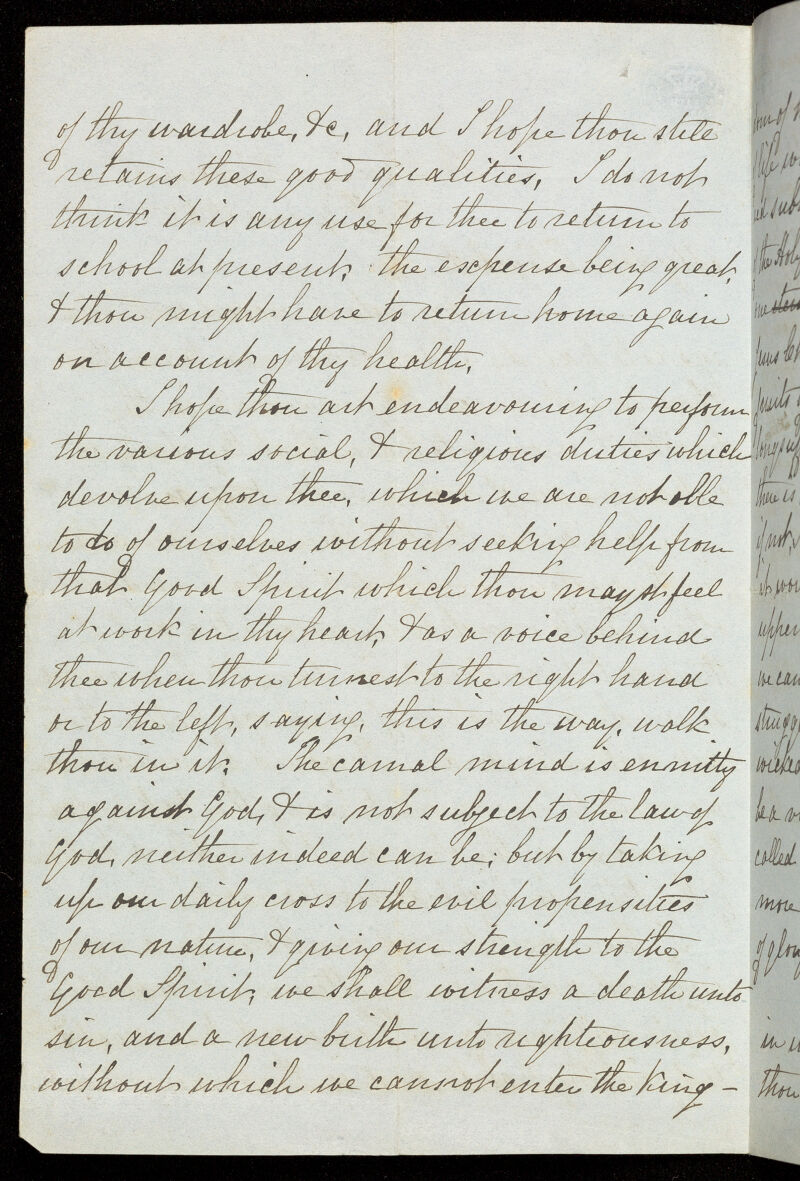 of thy wardrobe, &c, and I hope thou still
retains these good qualities, I do not
think it is any use for thee to return to
school at present, the expense being great,
& thou might have to return home again
on account of thy health,
I hope thou art endeavouring to perform
the various social, & religious duties which
devolve upon thee, which we are not able
to do of ourselves without seeking help from
that Good Spirit which thou mayst feel
at work in thy heart, & as a voice behind
thee when thou turnest to the right hand
or to the left, saying, this is the way, walk
thou in it. The carnal mind is enmity
against God, & is not subject to the law of
God, neither indeed can be; but by taking
up our daily cross to the evil propensities
of our nature, & giving our strength to the
Good Spirit, we shall witness a death unto
sin, and a new birth unto righteousness,
without which we cannot enter the King-
the Holy
there is
if not,
we can
wicked
be a
called
more
of glory
in
thou